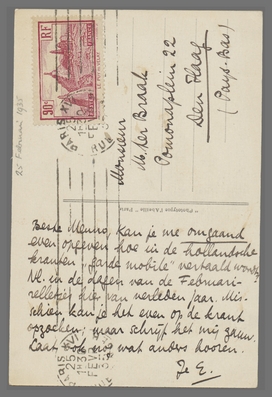 90c
RF
POSTES
LE PUY-EN-VELAY
PARIS
25
1935
25 Februari 1935
Monsieur
M. ter Braak
Pomonaplein 22
Den Haag
(Pays-Bas)
Beste Menno, kan je me omgaand
even opgeven hoe in de hollandsche
kranten "garde mobile" vertaald wordt,
nl. in de dagen van de Februari-
relletjes hier van verleden jaar. Mis-
schien kan je het even op de krant
opzoeken, maar schrijf het mij gauw.
Laat ook nog wat anders hooren.
Je E.
PARIS
25